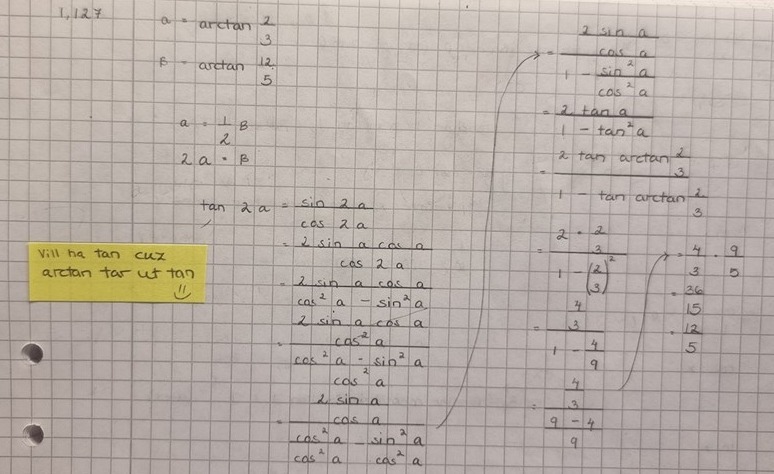 1,127
a = arctan 2/3
B = arctan 12/5
a = 1/2 B
2 a = B
tan 2 a = sin 2 a / cos 2 a
= 2 sin a cos a / cos 2 a
= 2 sin a cos a / cos² a - sin² a
= 2 sin a cos a / cos² a / cos² a - sin² a / cos² a
= 2 sin a / cos a / cos² a / cos² a - sin² a / cos² a
Vill ha tan cuz
arctan tar ut tan
= 2 sin a / cos a / 1 - sin² a / cos² a
= 2 tan a / 1 - tan² a
= 2 tan arctan 2/3 / 1 - tan arctan 2/3
= 2 · 2/3 / 1 - (2/3)²
= 4/3 / 1 - 4/9
= 4/3 / 9 - 4 / 9
= 4/3 · 9/5
= 36/15
= 12/5